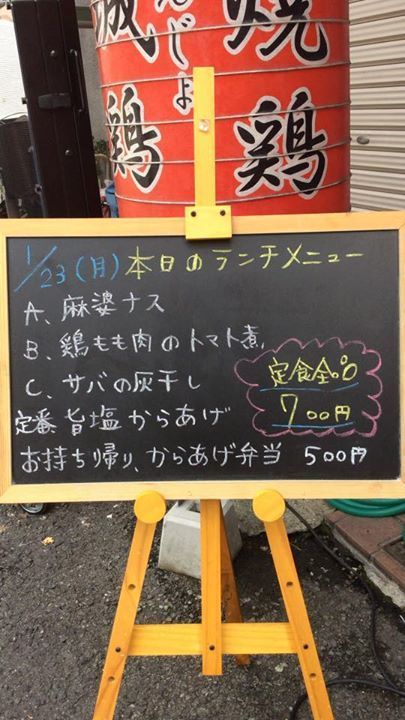 焼鶏
んじょ
鶏
1/23(月)本日のランチメニュー
A、麻婆ナス
B、鶏もも肉のトマト煮
C、サバの灰干し
定番 旨塩からあげ
お持ち帰り、からあげ弁当 500円
定食全て
700円